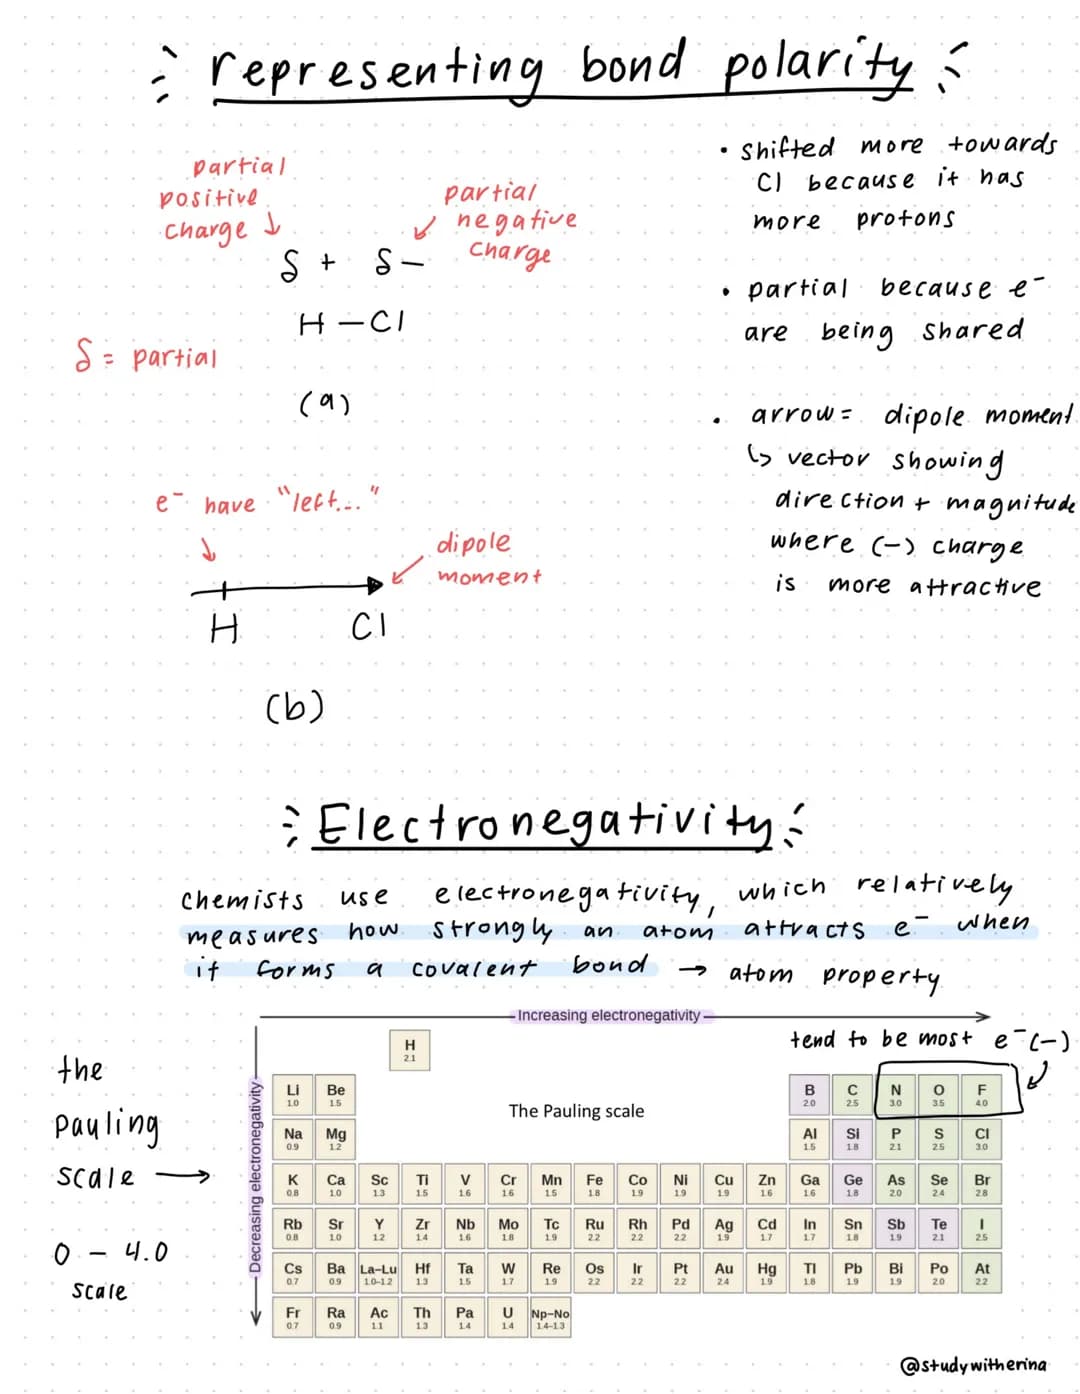 representing bond polarity
partial
positive
charge ↓
partial
negative
charge
δ + δ −
H − Cl
δ = partial
(a)
• shifted more towards
Cl because it has
more protons
• partial because e⁻
are being shared
• arrow = dipole moment
↳ vector showing
direction + magnitude
where (-) charge
is more attractive
e⁻ have "left..."
dipole
moment
H Cl
(b)
Electronegativity
chemists use electronegativity, which relatively
measures how strongly an atom attracts e⁻ when
it forms a covalent bond → atom property
Increasing electronegativity
tend to be most e⁻(-)
the
pauling
scale →
0 - 4.0
scale
Decreasing electronegativity
The Pauling scale
H
2.1
Li Be B C N O F
1.0 1.5 2.0 2.5 3.0 3.5 4.0
Na Mg Al Si P S Cl
0.9 1.2 1.5 1.8 2.1 2.5 3.0
K Ca Sc Ti V Cr Mn Fe Co Ni Cu Zn Ga Ge As Se Br
0.8 1.0 1.3 1.5 1.6 1.6 1.5 1.8 1.9 1.9 1.9 1.6 1.6 1.8 2.0 2.4 2.8
Rb Sr Y Zr Nb Mo Tc Ru Rh Pd Ag Cd In Sn Sb Te I
0.8 1.0 1.2 1.4 1.6 1.8 1.9 2.2 2.2 2.2 1.9 1.7 1.7 1.8 1.9 2.1 2.5
Cs Ba La–Lu Hf Ta W Re Os Ir Pt Au Hg Tl Pb Bi Po At
0.7 0.9 1.0–1.2 1.3 1.5 1.7 1.9 2.2 2.2 2.2 2.4 1.9 1.8 1.9 1.9 2.0 2.2
Fr Ra Ac Th Pa U Np–No
0.7 0.9 1.1 1.3 1.4 1.4 1.4–1.3
@studywitherina